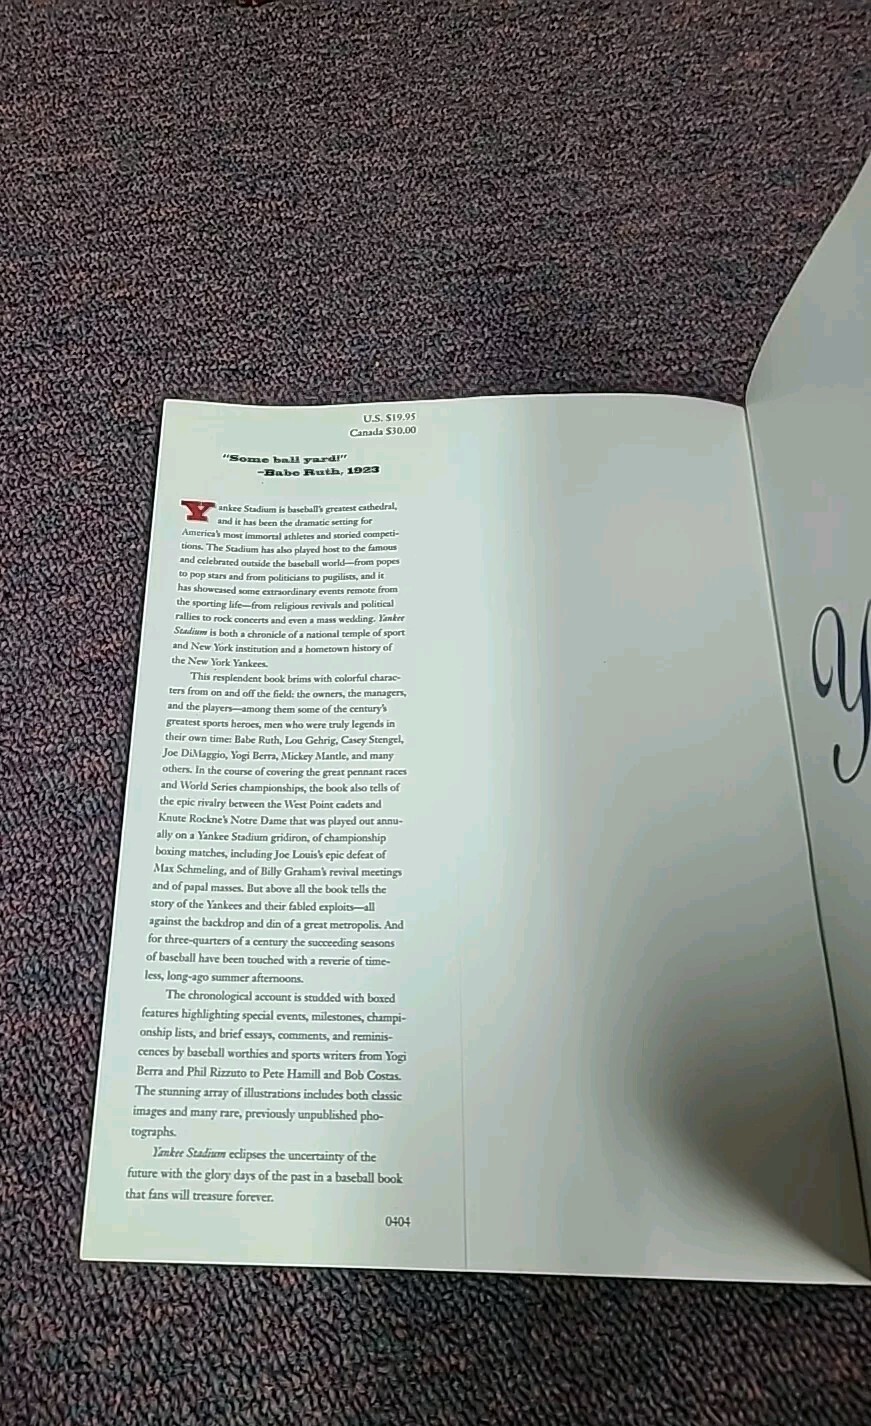 U.S. $19.95
Canada $30.00
"Some ball yard!"
-Babe Ruth, 1923
Yankee Stadium is baseball's greatest cathedral,
and it has been the dramatic setting for
America's most immortal athletes and storied competi-
tions. The Stadium has also played host to the famous
and celebrated outside the baseball world—from popes
to pop stars and from politicians to pugilists, and it
has showcased some extraordinary events remote from
the sporting life—from religious revivals and political
rallies to rock concerts and even a mass wedding. Yankee
Stadium is both a chronicle of a national temple of sport
and New York institution and a hometown history of
the New York Yankees.
This resplendent book brims with colorful charac-
ters from on and off the field: the owners, the managers,
and the players—among them some of the century's
greatest sports heroes, men who were truly legends in
their own time: Babe Ruth, Lou Gehrig, Casey Stengel,
Joe DiMaggio, Yogi Berra, Mickey Mantle, and many
others. In the course of covering the great pennant races
and World Series championships, the book also tells of
the epic rivalry between the West Point cadets and
Knute Rockne's Notre Dame that was played out annu-
ally on a Yankee Stadium gridiron, of championship
boxing matches, including Joe Louis's epic defeat of
Max Schmeling, and of Billy Graham's revival meetings
and of papal masses. But above all the book tells the
story of the Yankees and their fabled exploits—all
against the backdrop and din of a great metropolis. And
for three-quarters of a century the succeeding seasons
of baseball have been touched with a reverie of time-
less, long-ago summer afternoons.
The chronological account is studded with boxed
features highlighting special events, milestones, champi-
onship lists, and brief essays, comments, and reminis-
cences by baseball worthies and sports writers from Yogi
Berra and Phil Rizzuto to Pete Hamill and Bob Costas.
The stunning array of illustrations includes both classic
images and many rare, previously unpublished pho-
tographs.
Yankee Stadium eclipses the uncertainty of the
future with the glory days of the past in a baseball book
that fans will treasure forever.
0404
Y